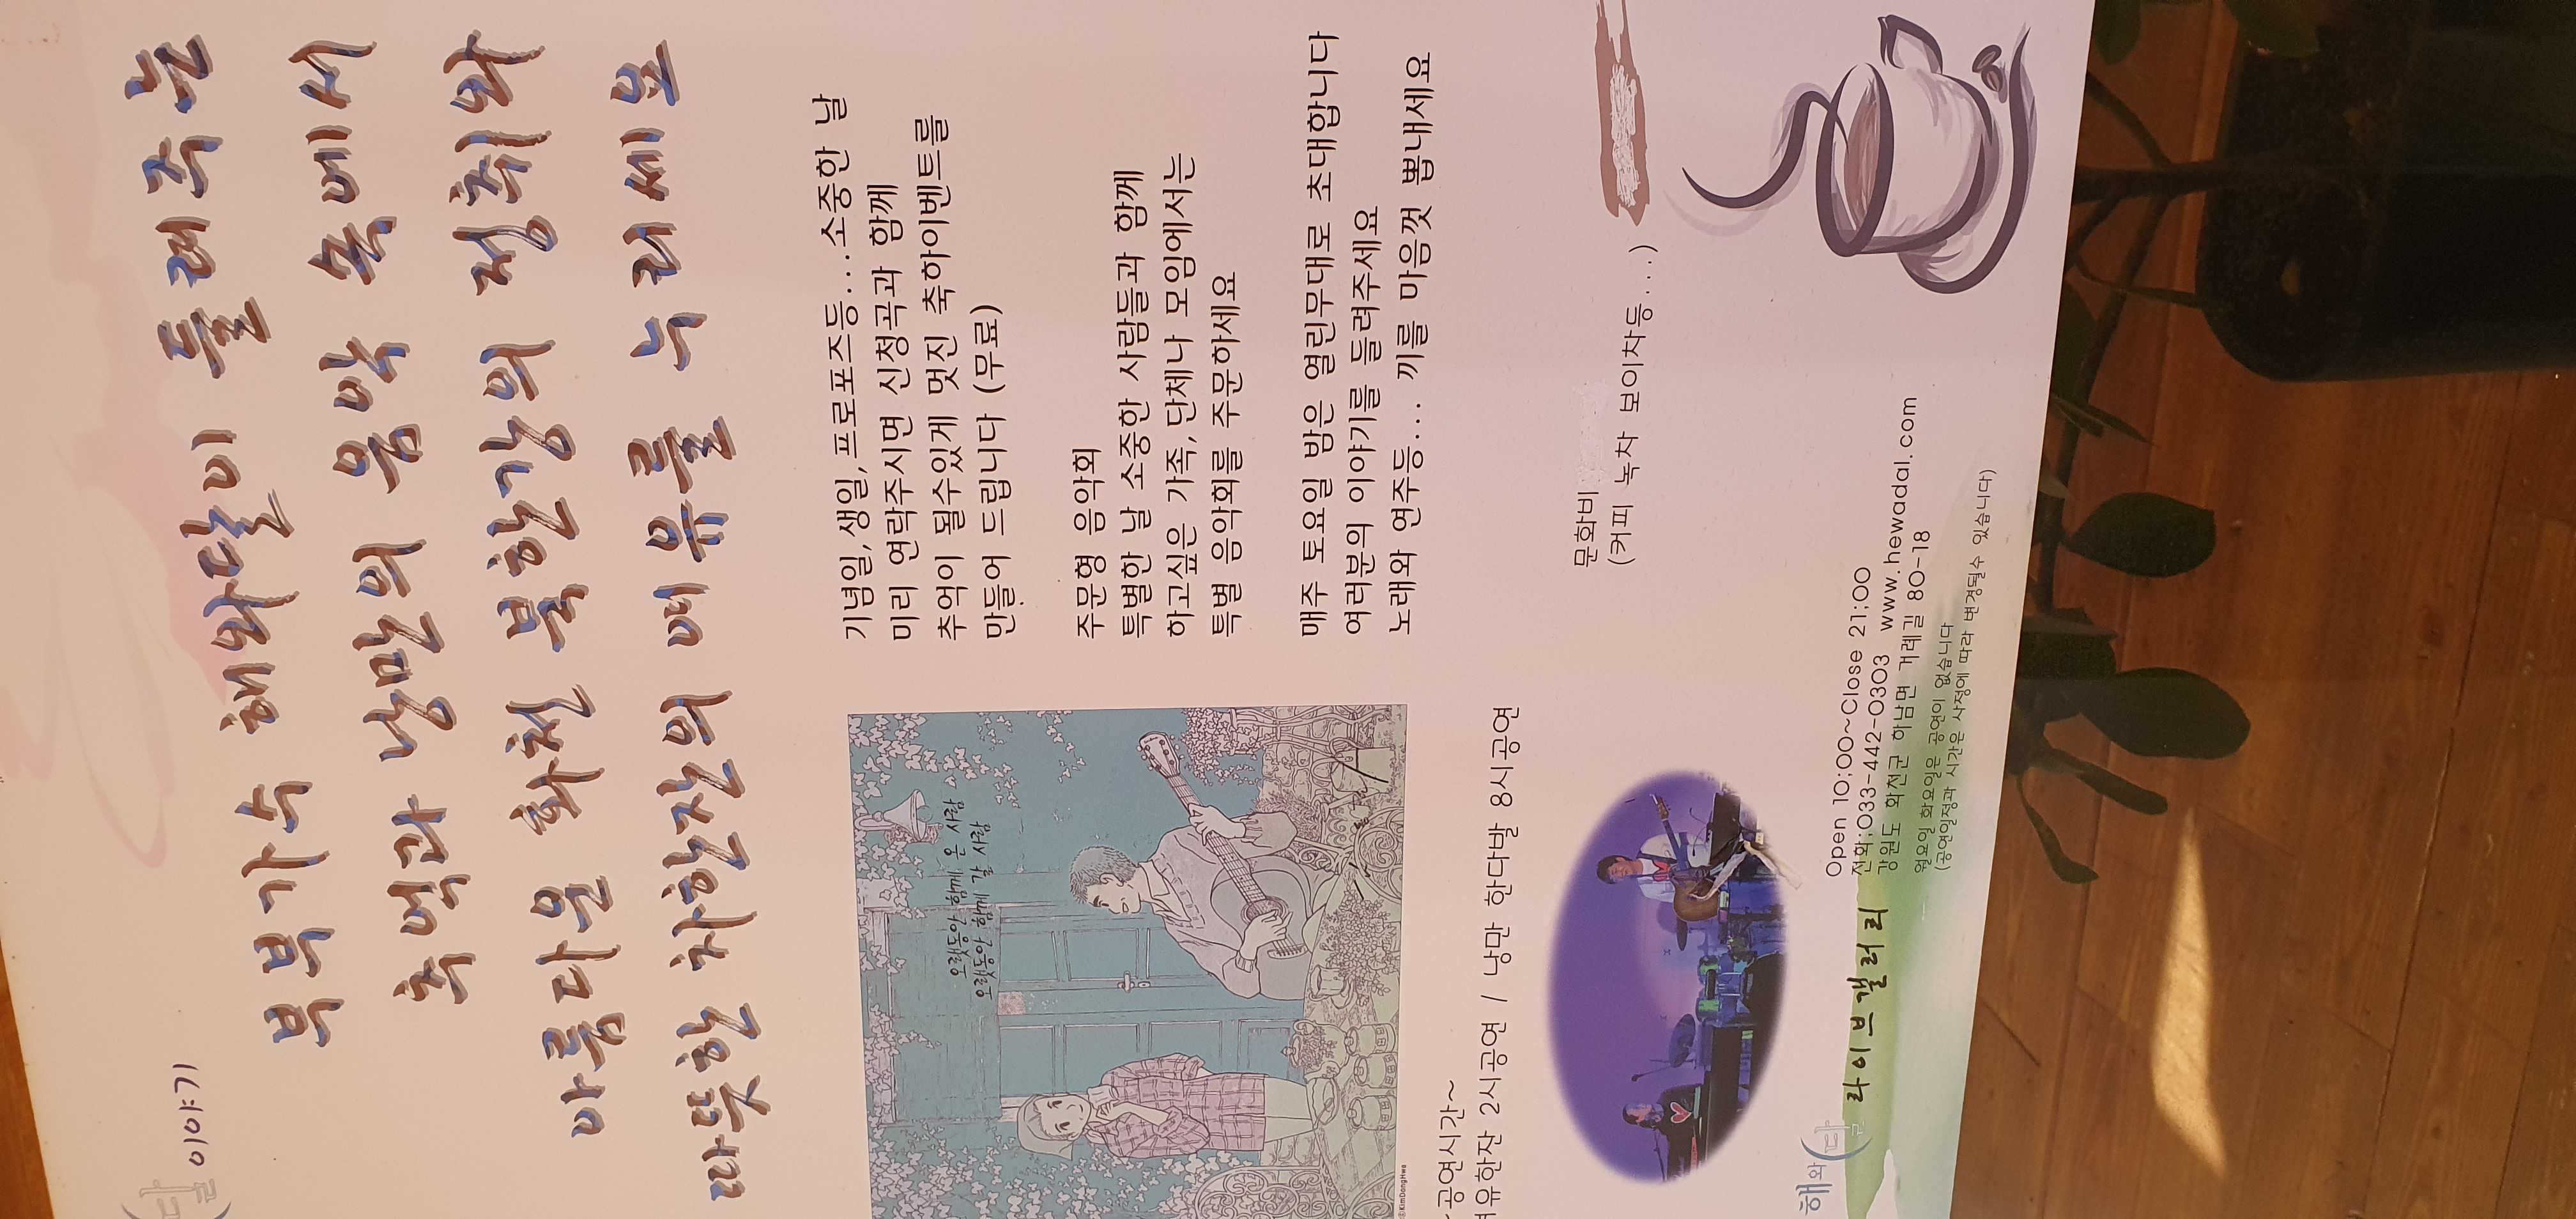 달 이야기
부부가수 해와달이 들려주는
추억과 낭만의 음악 속에서
아름다운 화천 북한강의 정취와
따뜻한 차한잔의 여유를 누리세요
기념일,생일,프로포즈등...소중한 날
미리 연락주시면 신청곡과 함께
추억이 될수있게 멋진 축하이벤트를
만들어 드립니다 (무료)
주문형 음악회
특별한 날 소중한 사람들과 함께
하고싶은 가족,단체나 모임에서는
특별 음악회를 주문하세요
매주 토요일 밤은 열린무대로 초대합니다
여러분의 이야기를 들려주세요
노래와 연주등... 끼를 마음껏 뽐내세요
오랫동안 함께 온 사람
오랫동안 함께 갈 사람
©KimDongHwa
~공연시간~
여유한잔 2시공연 / 낭만 한다발 8시공연
문화비
(커피 녹차 보이차등...)
해와달 라이브갤러리
Open 10;00~Close 21;00
전화;033-442-0303 www.hewadal.com
강원도 화천군 하남면 거례길 80-18
월요일 화요일은 공연이 없습니다
(공연일정과 시간은 사정에 따라 변경될수 있습니다)